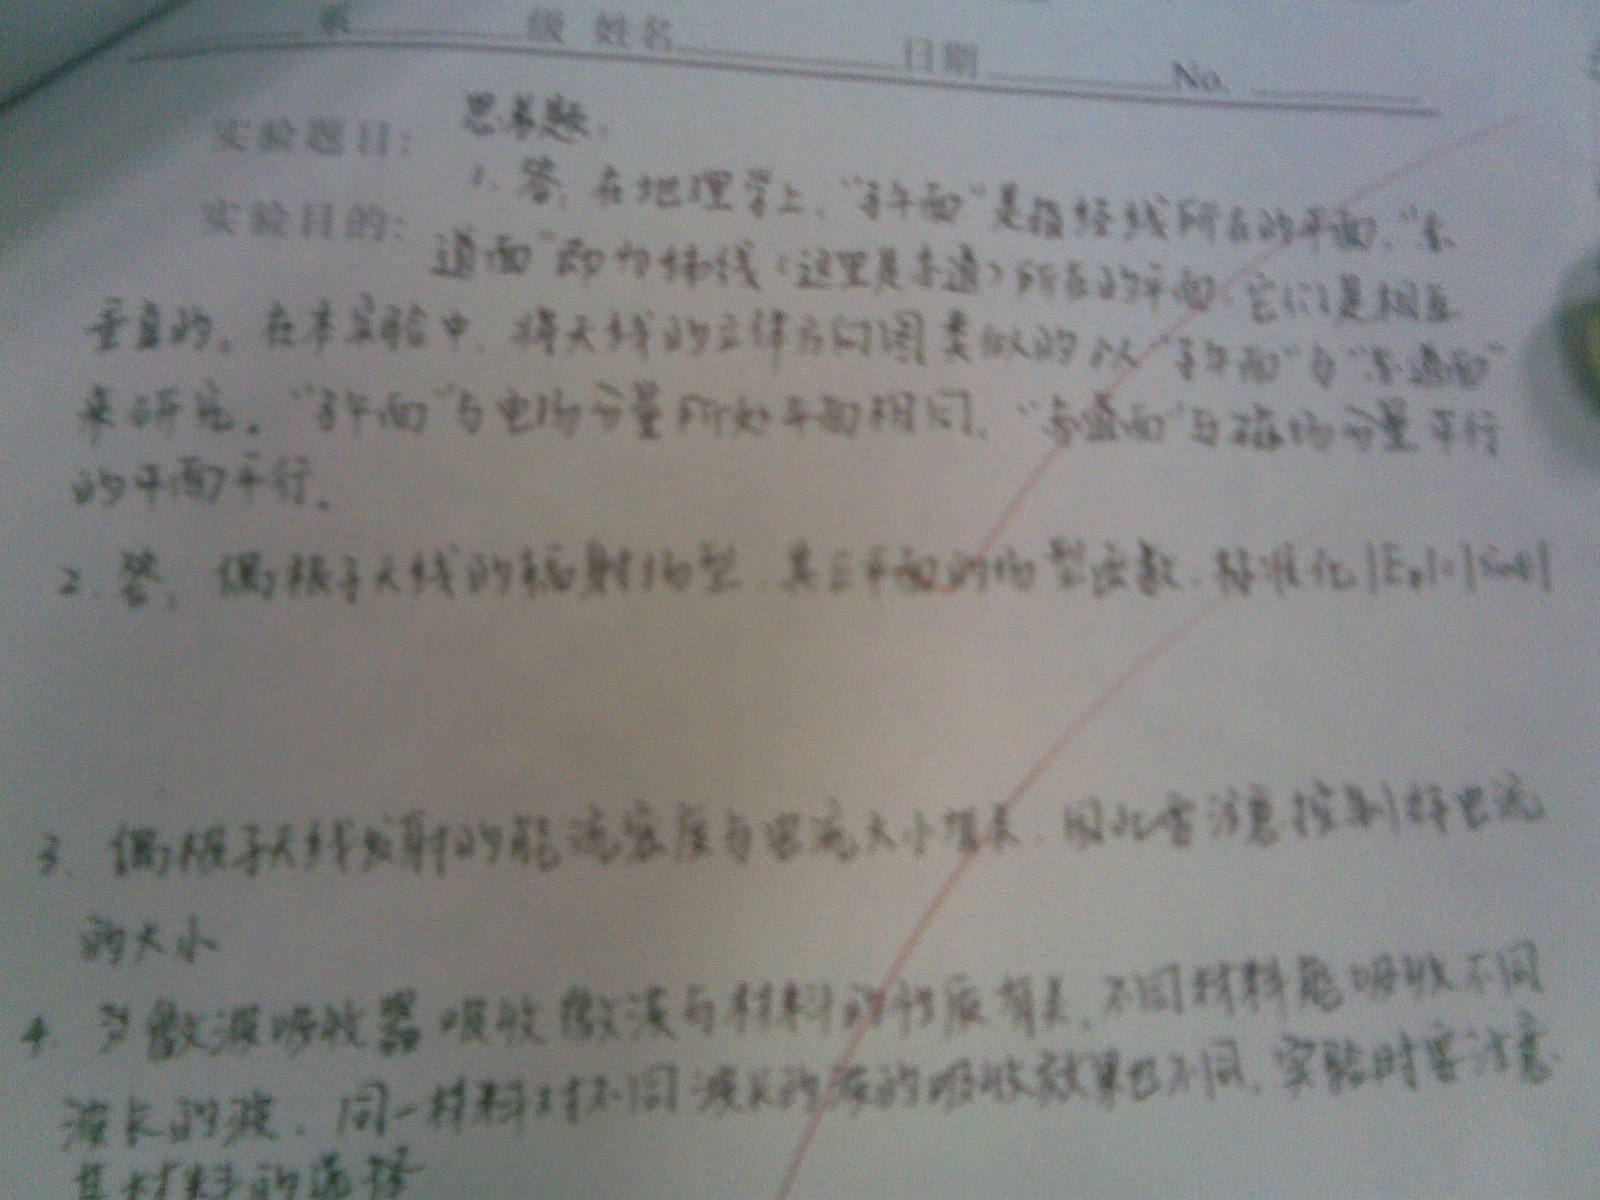 系 级 姓名 日期 No.
实验题目: 思考题:
1. 答: 在地理学上, "子午面"是指经线所在的平面, "赤
实验目的: 道面"即为纬线(这里是赤道)所在的平面, 它们是相互
垂直的。在本实验中, 将天线的立体方向图类似的以"子午面"与"赤道面"
来研究。"子午面"与电场分量所处平面相同, "赤道面"与磁场分量平行
的平面平行。
2. 答: 偶极子天线的辐射场型, 其E平面的场型函数, 标准化|
3. 偶极子天线发射的能流密度与电流大小有关, 因此要注意控制好电流
的大小
4. 微波吸收器吸收微波与材料的性质有关, 不同材料能吸收不同
波长的波, 同一材料对不同波长的波的吸收效果也不同, 实验时要注意
其材料的选择